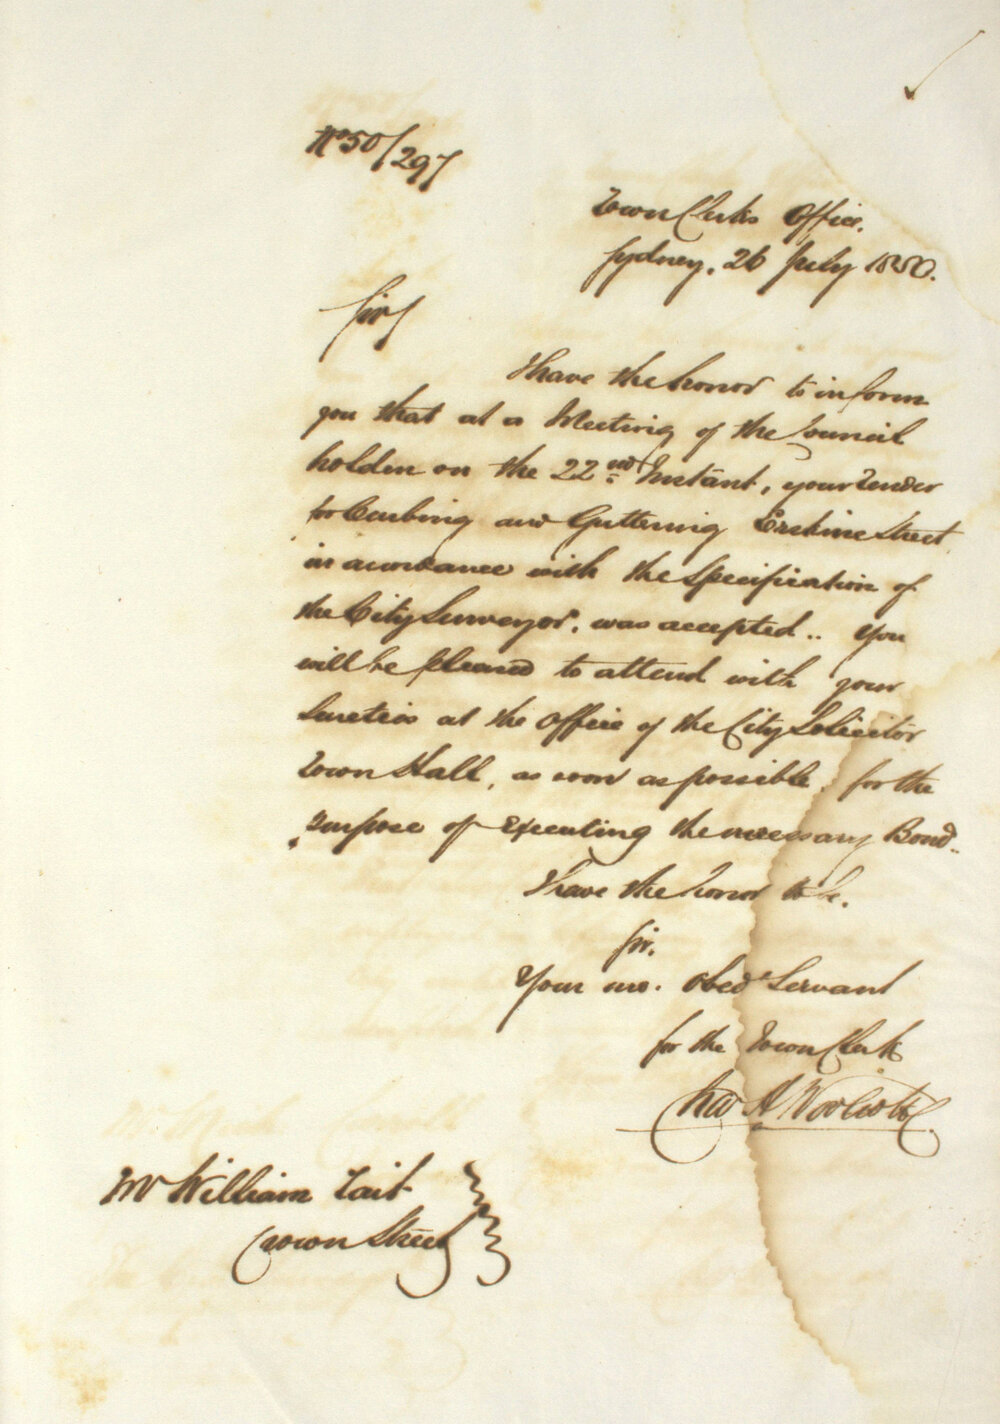 No 50/297
Town Clerks Office.
Sydney, 26 July 1850.
Sir/
I have the honor to inform
you that at a Meeting of the Council
holden on the 22nd Instant, your Tender
for Curbing and Guttering Erskine Street
in accordance with the Specification of
the City Surveyor, was accepted.. You
will be pleased to attend with your
Sureties at the Office of the City Solicitor
Town Hall, as soon as possible, for the
Purpose of Executing the necessary Bond..
I have the honor to be.
Sir.
Your mo. Obedt Servant
for the Town Clerk
Chas H Woolcott
Mr William Tait
Crown Street